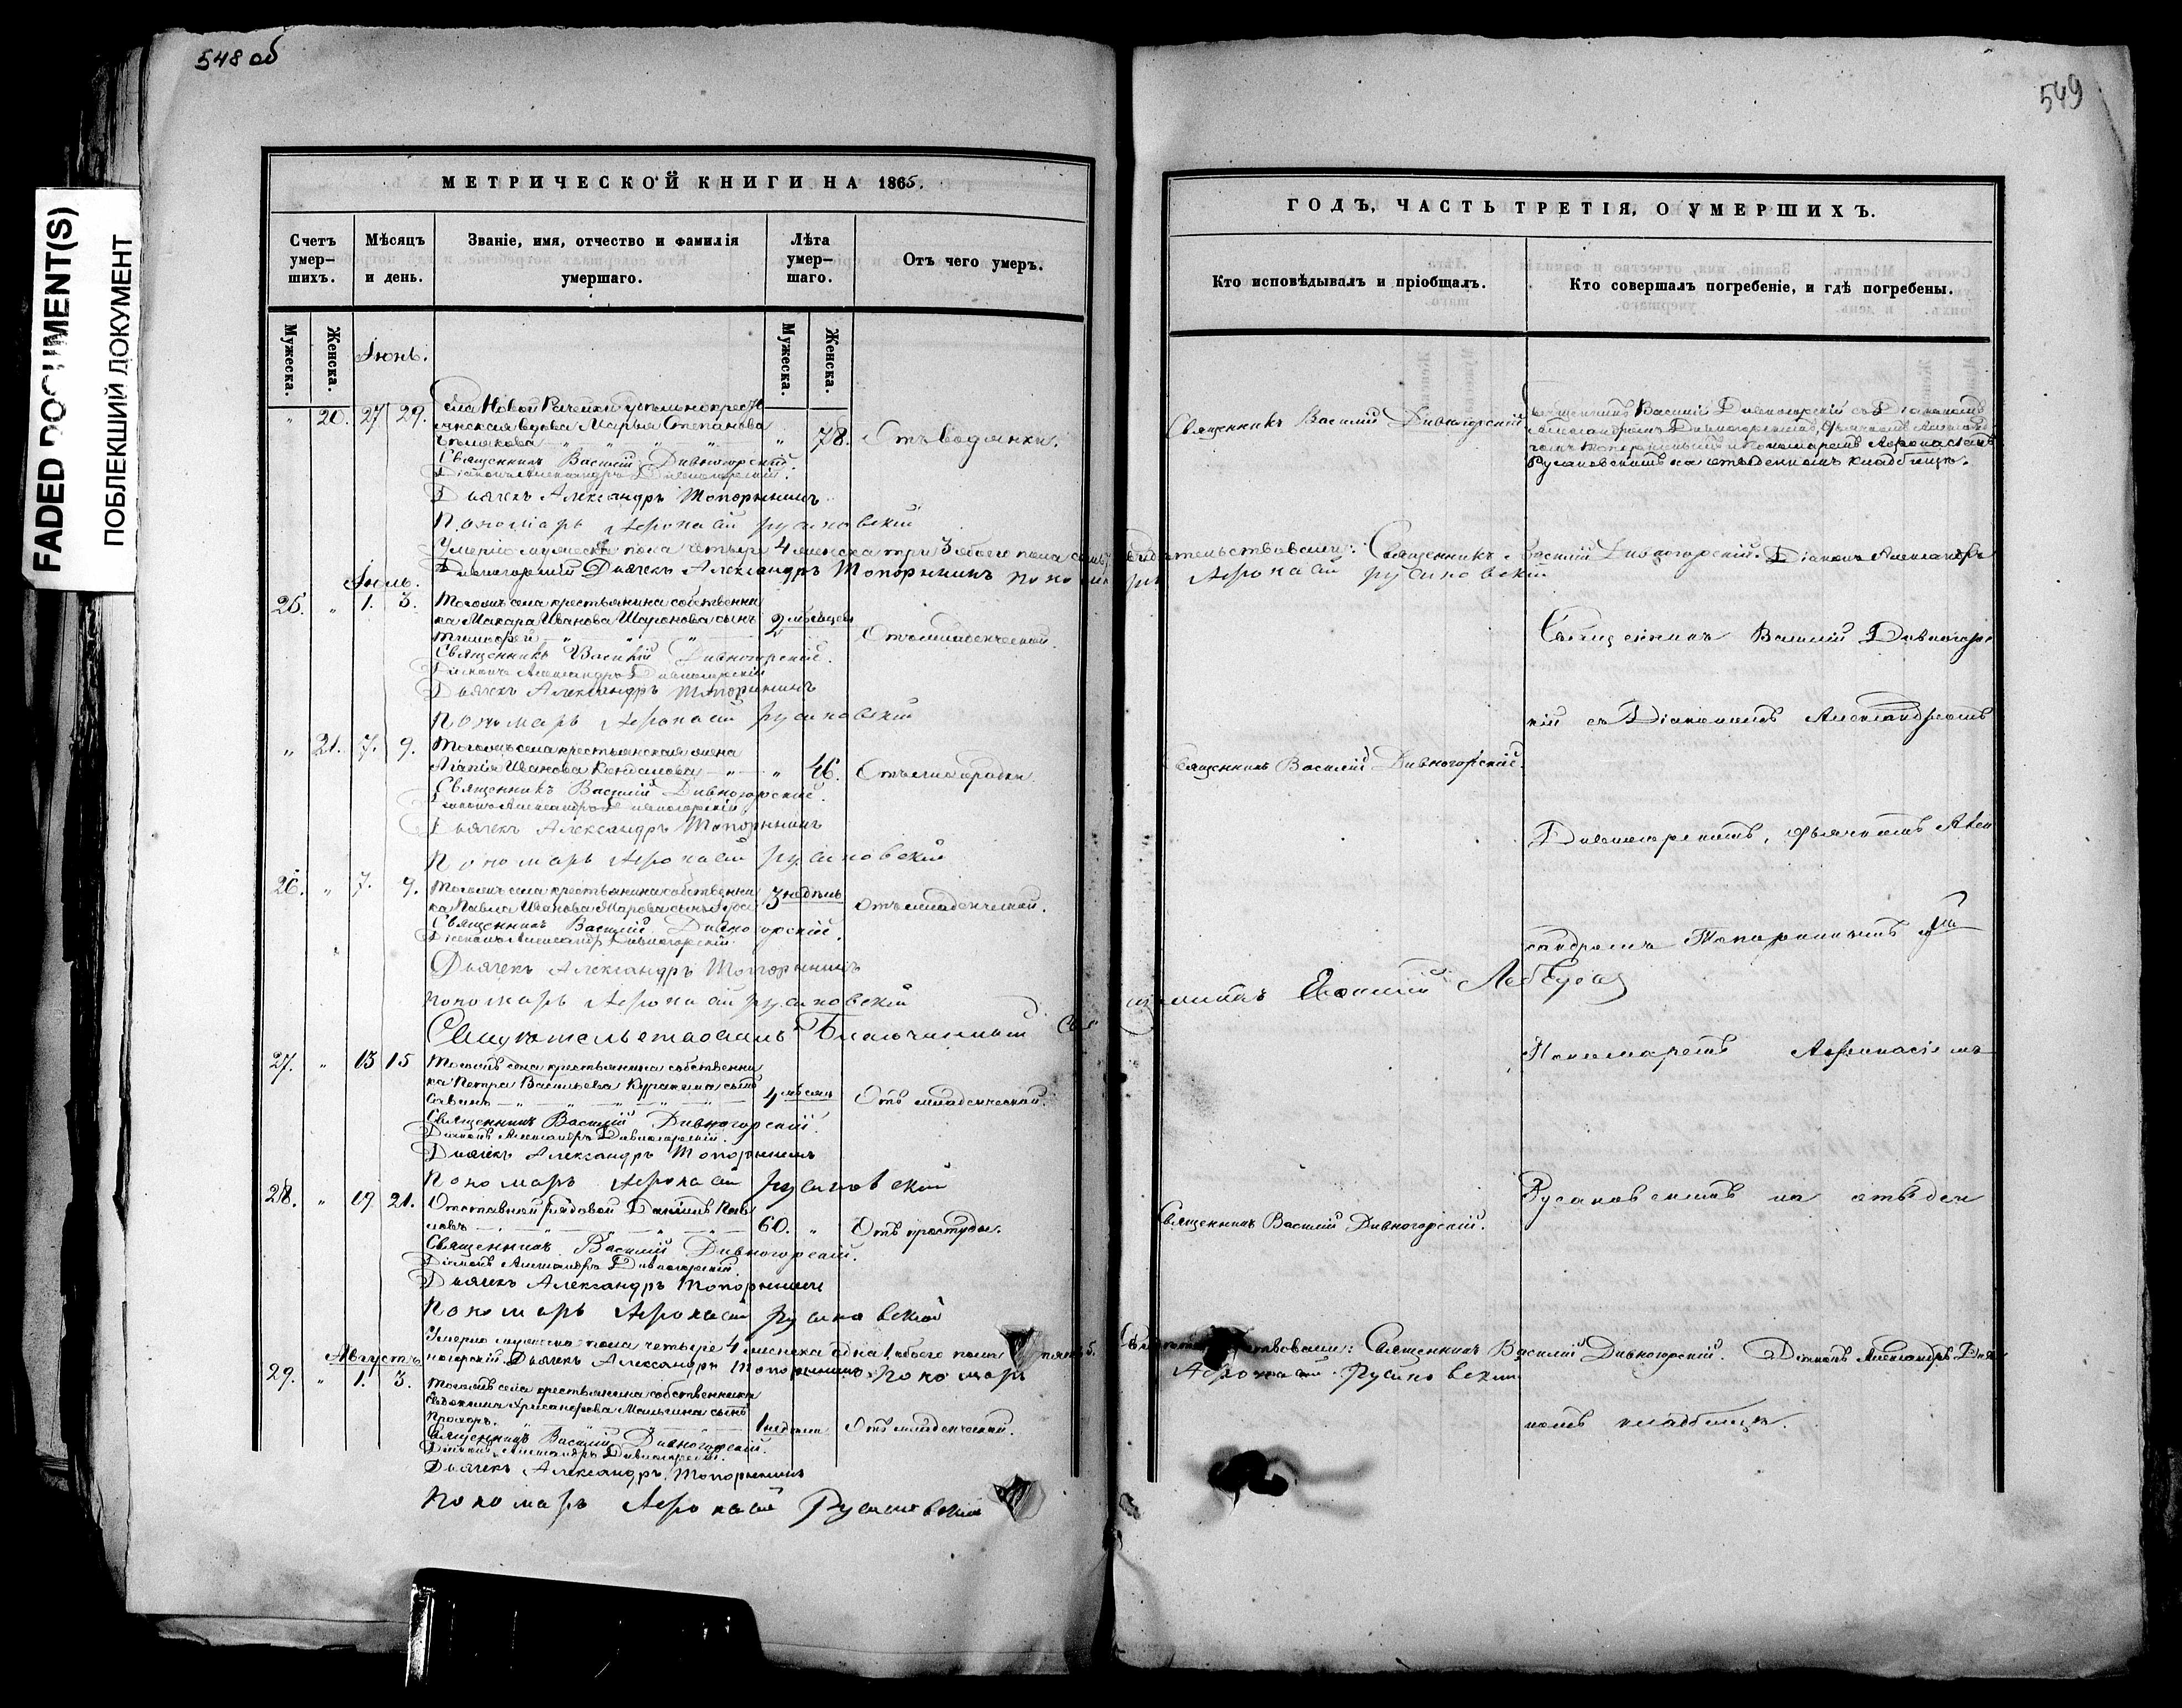 548 об
549
FADED DOCUMENT(S)
ПОБЛЕКШИЙ ДОКУМЕНТ
МЕТРИЧЕСКОЙ КНИГИ НА 1865.
Счетъ умер-шихъ.
Мѣсяцъ и день.
Званіе, имя, отчество и фамилія умершаго.
Лѣта умер-шаго.
Отъ чего умеръ.
Мужеска.
Женска.
Мужеска.
Женска.
Іюнь.
" 20. 27 29. Села Новой Рачейки удѣльнокресть
янская вдова Марья Степанова
" 78. Отъ водянки.
Священникъ Василій Дивногорскій.
Діаконъ Александръ Дивногорскій.
Дьячекъ Александръ Топорнинъ
Пономарь Афонасій Русановскій
Умерло мужеска пола четыре 4 женска три 3 обоего пола семь
Дивногорскій Дьячекъ Александръ Топорнинъ Пономарь
Іюль.
25. " 1. 3. Тогожъ села крестьянина собственни
ка Макара Иванова Шаронова сынъ 2 мѣсяцевъ
Тимофей Отъ младенческой.
Священникъ Василій Дивногорскій.
Діаконъ Александръ Дивногорскій
Дьячекъ Александръ Топорнинъ
Пономарь Афонасій Русановскій
" 21. 7. 9. Тогожъ села крестьянская жена
Иванова " 46. Отъ лихорадки.
Священникъ Василій Дивногорскій.
Діаконъ Александръ Дивногорскій.
Дьячекъ Александръ Топорнинъ
Пономарь Афонасій Русановскій
26. " 7. 9. Тогожъ села крестьянина собственни
ка Павла Иванова Марова сынъ 3 недѣль Отъ младенческой.
Священникъ Василій Дивногорскій.
Діаконъ Александръ Дивногорскій.
Дьячекъ Александръ Топорнинъ
Пономарь Афонасій Русановскій
Благочинный
27. " 13 15 Тогожъ села крестьянина собственни
ка Петра Васильева Куракина сынъ
4 мѣсяц Отъ младенческой.
Священникъ Василій Дивногорскій.
Діаконъ Александръ Дивногорскій.
Дьячекъ Александръ Топорнинъ
Пономарь Афонасій Русановскій
28. " 19 21. Отставной рядовой Даніилъ Пав
ловъ 60. " Отъ простуды.
Священникъ Василій Дивногорскій.
Діаконъ Александръ Дивногорскій
Дьячекъ Александръ Топорнинъ
Пономарь Афонасій Русановскій
Умерло мужеска пола четыре 4 женска одна 1 обоего пола пять 5.
ногорскій Дьячекъ Александръ Топорнинъ Пономарь
Августъ
29. " 1. 3. Тогожъ села крестьянина собственника
Евдокима Хрисанфова Мальгина сынъ
Прохоръ. 1 недѣли Отъ младенческой.
Священникъ Василій Дивногорскій.
Діаконъ Александръ Дивногорскій.
Дьячекъ Александръ Топорнинъ
Пономарь Афонасій Русановскій
ГОДЪ, ЧАСТЬ ТРЕТІЯ, О УМЕРШИХЪ.
Кто исповѣдывалъ и пріобщалъ.
Кто совершалъ погребеніе, и гдѣ погребены.
Священникъ Василій Дивногорскій
Священникъ Василій Дивногорскій съ Діакономъ
Александромъ Дивногорскимъ, дьячкомъ Александ
ромъ Топорнинымъ и Пономаремъ Афонасіемъ
Русановскимъ на отведенномъ кладбищѣ.
видѣтельствовали: Священникъ Василій Дивногорскій. Діаконъ Александръ
Афонасій Русановскій
Священникъ Василій Дивногорс
кій съ Діакономъ Александромъ
Священникъ Василій Дивногорскій.
Дивногорскимъ, дьячкомъ Алек
сандромъ Топорнинымъ и
Лебедев
Пономаремъ Афонасіемъ
Русановскимъ на отведен
Священникъ Василій Дивногорскій.
Священникъ Василій Дивногорскій. Діаконъ Александръ Див
Афонасій Русановскій
номъ кладбищѣ.